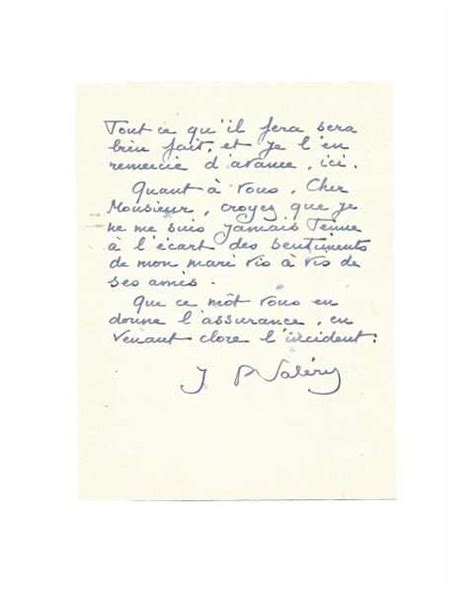 Tout ce qu'il fera sera
bien fait, et je l'en
remercie d'avance, ici.
Quant à vous, Cher
Monsieur, croyez que je
ne me suis jamais tenue
à l'écart des sentiments
de mon mari vis à vis de
ses amis.
Que ce mot vous en
donne l'assurance, en
venant clore l'incident.
J P Valéry